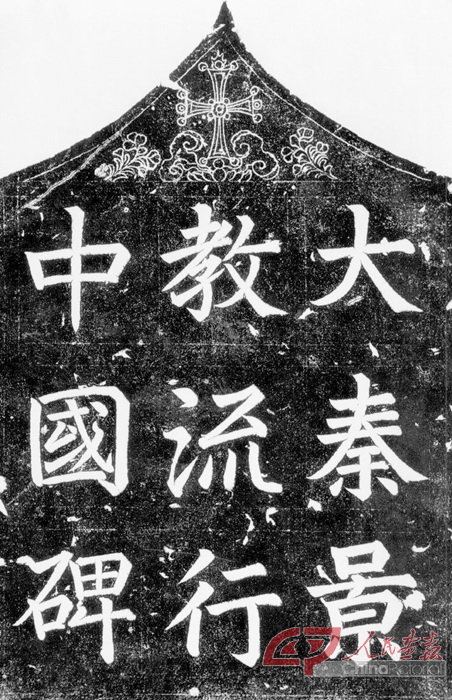 大秦景
教流行
中國碑
CP 人民画报
ChinaPictorial